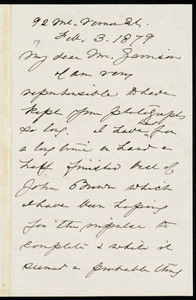 92 Mt. Vernon St.
Feb. 3. 1879
My dear Mr. Garrison
I am very
reprehensible to have
kept your photographs
so long. I have for
a long time in hand a
half finished bust of
John Brown which
I have been hoping
for the impulse to
complete & while it
seemed a probable thing